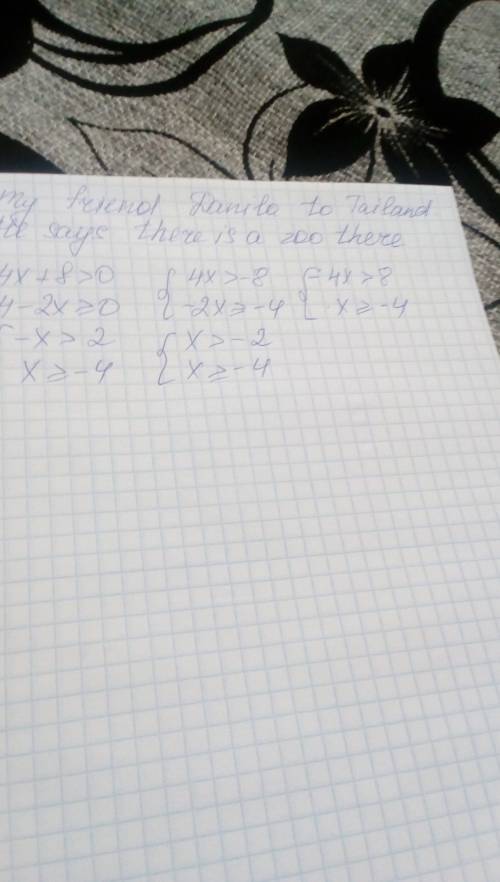 my friend Danila to Tailand
He says there is a zoo there
4x+8>0 { 4x>-8 { 4x>8
4-2x≥0 -2x≥-4 x≥-4
{ -x>2 { x>-2
x≥-4 x≥-4